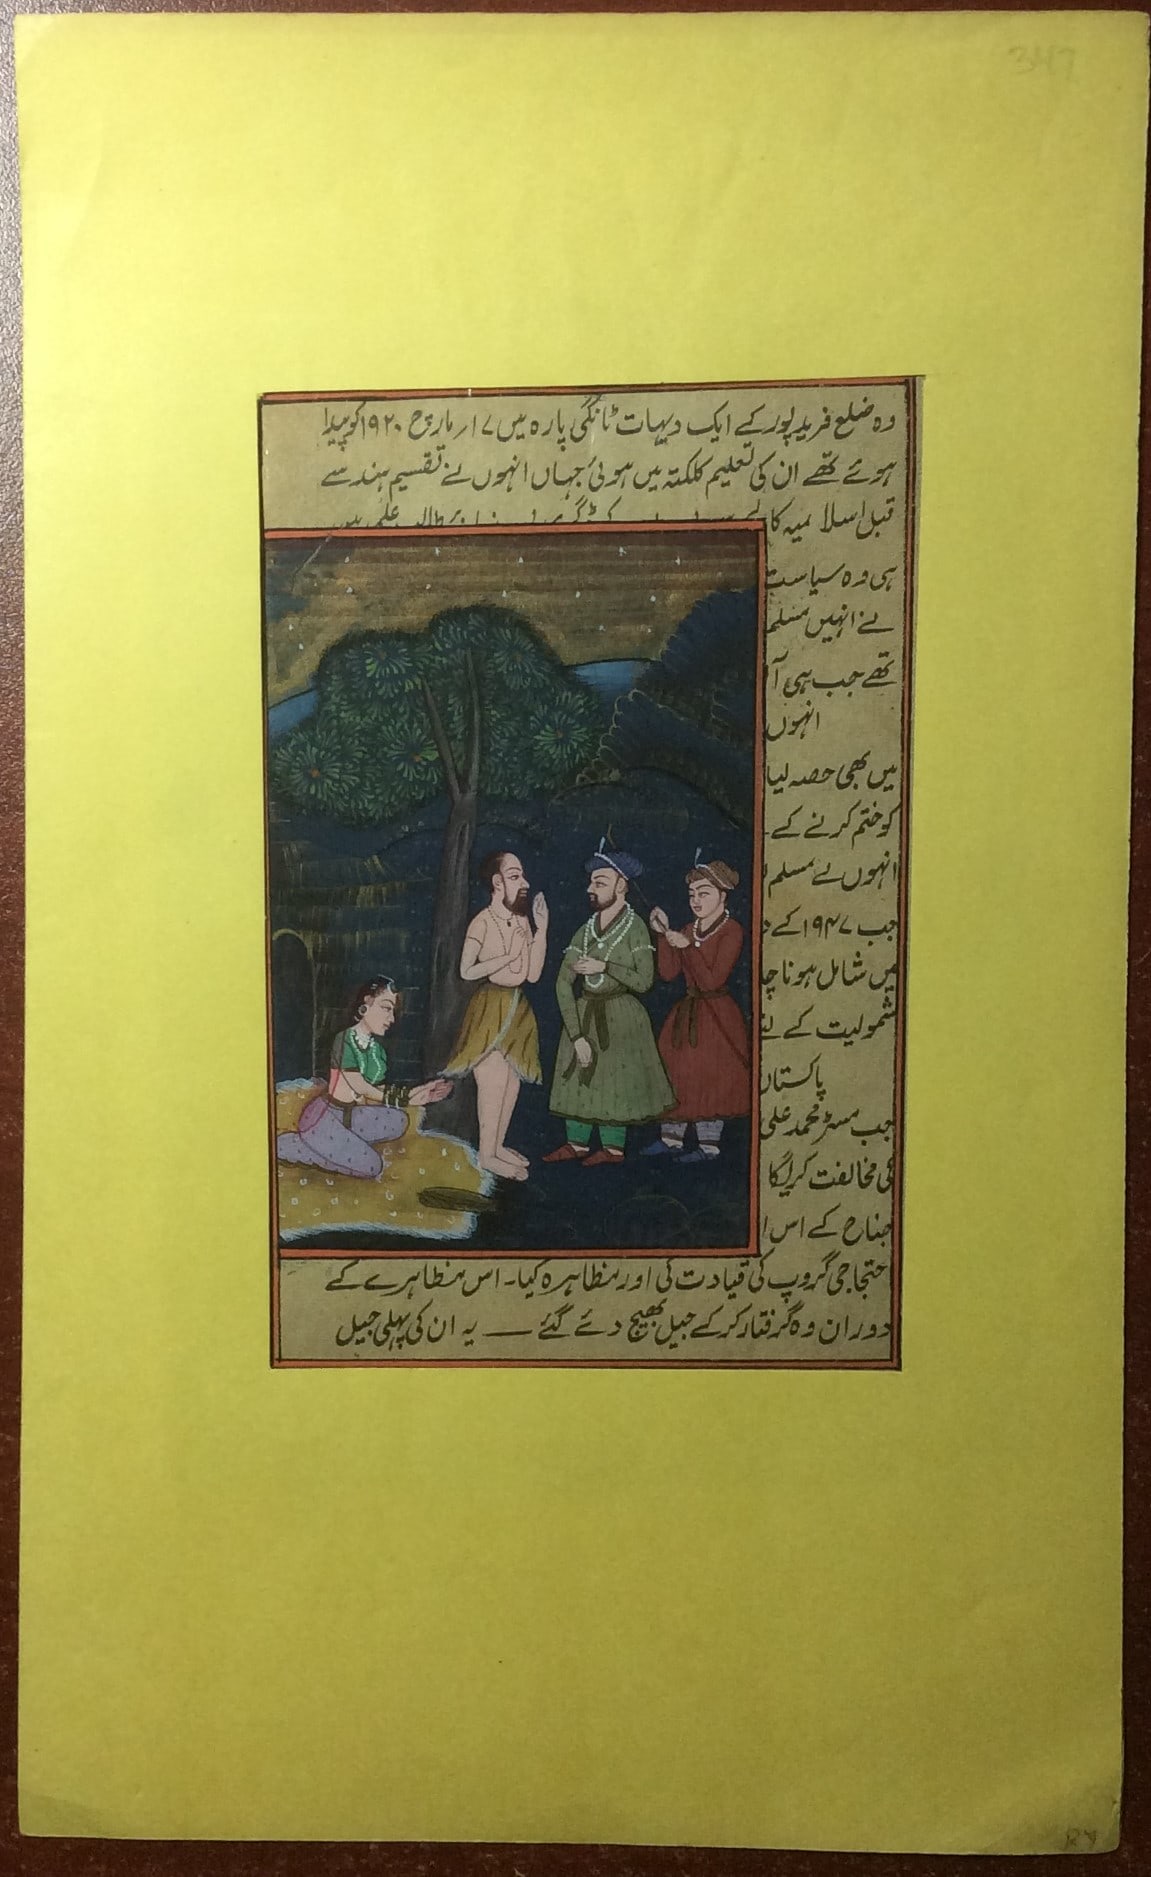 347
وہ ضلع فرید پور کے ایک دیہات ٹانگی پارہ میں ۱۷ر مارچ ۱۹۲۰ کو پیدا
ہوئے تھے ان کی تعلیم کلکتہ میں ہوئی جہاں انہوں نے تقسیم ہند سے
قبل اسلامیہ کا
ہی وہ سیاست
نے انہیں مسلم
تھے جب ہی آ
انہوں
میں بھی حصہ لیا
کو ختم کرنے کے
انہوں نے مسلم
جب ۱۹۴۷ کے
میں شامل ہونا چا
شمولیت کے لئے
پاکستان
جب مسٹر محمد علی
کی مخالفت کریگا
جناح کے اس ا
حتجاجی گروپ کی قیادت کی اور منظاہرہ کیا۔ اس منظاہرے کے
دوران وہ گرفتار کر کے جیل بھیج دئے گئے — یہ ان کی پہلی جیل